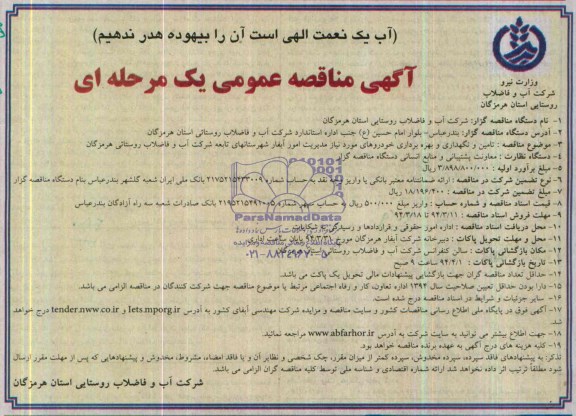 (آب یک نعمت الهی است آن را بیهوده هدر ندهیم)
وزارت نیرو
شرکت آب و فاضلاب
روستایی استان هرمزگان
آگهی مناقصه عمومی یک مرحله ای
۱- نام دستگاه مناقصه گزار: شرکت آب و فاضلاب روستایی استان هرمزگان
۲- آدرس دستگاه مناقصه گزار: بندرعباس- بلوار امام حسین (ع) جنب اداره استاندارد شرکت آب و فاضلاب روستائی استان هرمزگان
۳- موضوع مناقصه : تامین و نگهداری و بهره برداری خودروهای مورد نیاز مدیریت امور آبفار شهرستانهای تابعه شرکت آب و فاضلاب روستائی هرمزگان
۴- دستگاه نظارت : معاونت پشتیبانی و منابع انسانی دستگاه مناقصه گزار
۵- مبلغ برآورد اولیه : ۳/۸۹۸/۸۰۰/۰۰۰
۶- نوع تضمین شرکت در مناقصه : ارائه ضمانتنامه معتبر بانکی یا واریز وجه نقد به حساب شماره بانک ملی ایران شعبه گلشهر بندرعباس بنام دستگاه مناقصه گزار
۷- مبلغ تضمین شرکت در مناقصه : ۱۸/۱۹۶/۴۰۰ ریال
۸- قیمت اسناد مناقصه و شماره حساب : واریز مبلغ ۵۰۰/۰۰۰ ریال به حساب سپهر شماره بانک صادرات شعبه سه راه آزادگان بندرعباس
۹- مهلت فروش اسناد مناقصه : ۹۴/۳/۱۱ تا ۹۴/۳/۱۸
۱۰- محل دریافت اسناد مناقصه : اداره امور حقوقی و قراردادها و رسیدگی به شکایات
۱۱- محل و مهلت تحویل پاکات : دبیرخانه شرکت آبفار هرمزگان مورخ ۹۴/۳/۳۱ پایان ساعت اداری
۱۲- مکان بازگشائی پاکات : سالن کنفرانس شرکت آب و فاضلاب روستائی استان هرمزگان
۱۳- تاریخ بازگشائی پاکات : ساعت ۹ صبح
۱۴- حداقل تعداد مناقصه گران جهت بازگشایی پیشنهادات مالی تحویل یک پاکت می باشد.
۱۵- دارا بودن حداقل تعیین صلاحیت سال ۱۳۹۴ اداره تعاون، کار و رفاه اجتماعی مرتبط با موضوع مناقصه جهت شرکت کنندگان در مناقصه الزامی می باشد.
۱۶- سایر جزئیات و شرایط در اسناد مناقصه درج شده است.
۱۷- آگهی فوق در پایگاه ملی اطلاع رسانی مناقصات کشور و سایت مناقصه و مزایده شرکت مهندسی آبفای کشور به آدرس Iets.mporg.ir و tender.nww.co.ir درج خواهد
شد.
۱۸- جهت اطلاع بیشتر می توانید به سایت شرکت به آدرس www.abfarhor.ir مراجعه نمائید.
۱۹- کلیه هزینه های درج آگهی به عهده برنده مناقصه خواهد بود.
تذکر: به پیشنهادهای فاقد سپرده، سپرده مخدوش، سپرده کمتر از میزان مقرر، چک شخصی و نظایر آن و یا فاقد امضاء، مشروط، مخدوش و پیشنهادهایی که پس از مهلت مقرر ارسال
شود مطلقاً ترتیب اثر داده نخواهد شد ارائه شماره اقتصادی و شناسه ملی توسط کلیه مناقصه گران الزامی می باشد.
شرکت آب و فاضلاب روستایی استان هرمزگان
ParsNamadData
۰۲۱-۸۸۳۴۹۶۷۰-۵